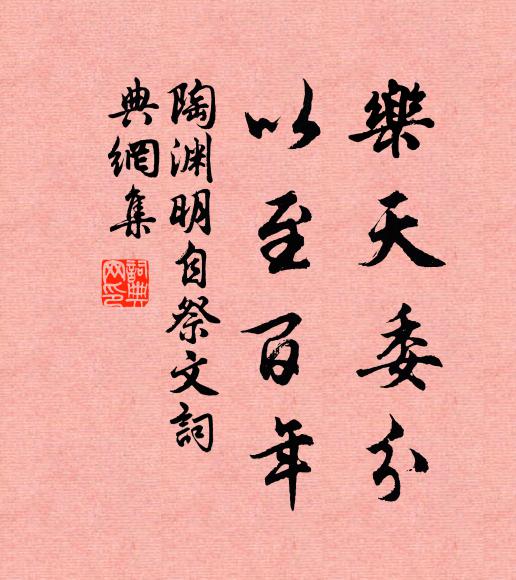 樂天委分
以至百年
陶渊明自祭文詞
典網集
詞典
网印